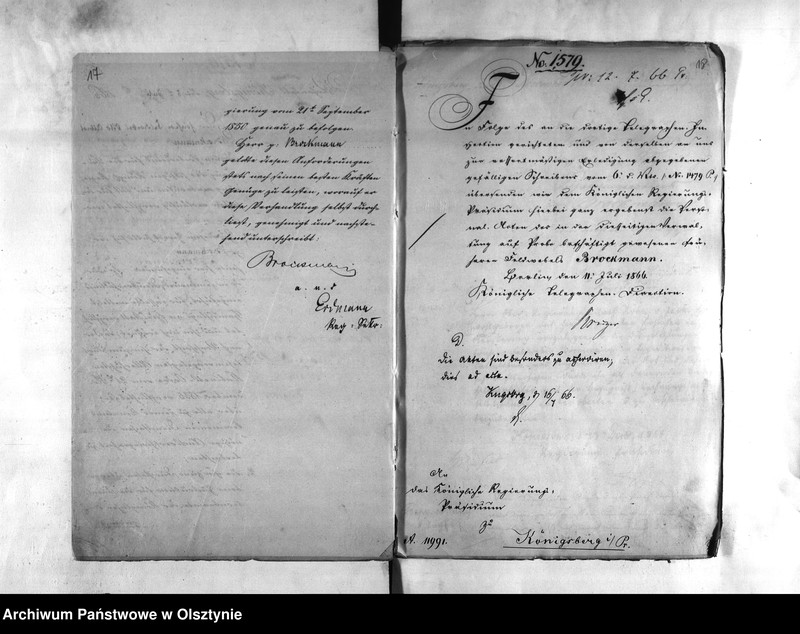 17
gierung vom 21ten September
1850 genau zu befolgen.
Herr p. Brockmann
gelobte diesen Anforderungen
stets nach seinen besten Kräften
Genüge zu leisten, worauf er
diese Verhandlung selbst durch-
liest, genehmigt und nachste-
hend unterschreibt:
Brockmann
a. u. s
Erdmann
Reg: Sekr:
18
No. 1579.
12. 7. 66
In Folge des an die dortige Telegraphen-In-
spection gerichteten und von derselben an uns
zur ressortmäßigen Erledigung abgegebenen
gefälligen Schreibens vom 6. d. Mts. /No. 1479 P./
übersenden wir dem Königlichen Regierungs-
Präsidium hierbei ganz ergebenst die Perso-
nal-Acten des in der diesseitigen Verwal-
tung auf Probe beschäftigt gewesenen frü-
heren Feldwebels Brockmann.
Berlin, den 11. Juli 1866.
Königliche Telegraphen-Direction.
D.
die Akten sind besonders zu asserviren,
dies ad acta.
Kngsbrg, d 16/7 66.
An
das Königliche Regierungs-
Präsidium
zu
Königsberg i/Pr.
N. 11991.
Archiwum Państwowe w Olsztynie